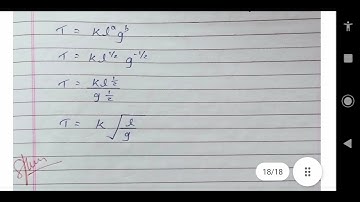 T = K l^a g^b
T = K l^{1/2} g^{-1/2}
T = \frac{K l^{\frac{1}{2}}}{g^{\frac{1}{2}}}
T = K \sqrt{\frac{l}{g}}
18/18